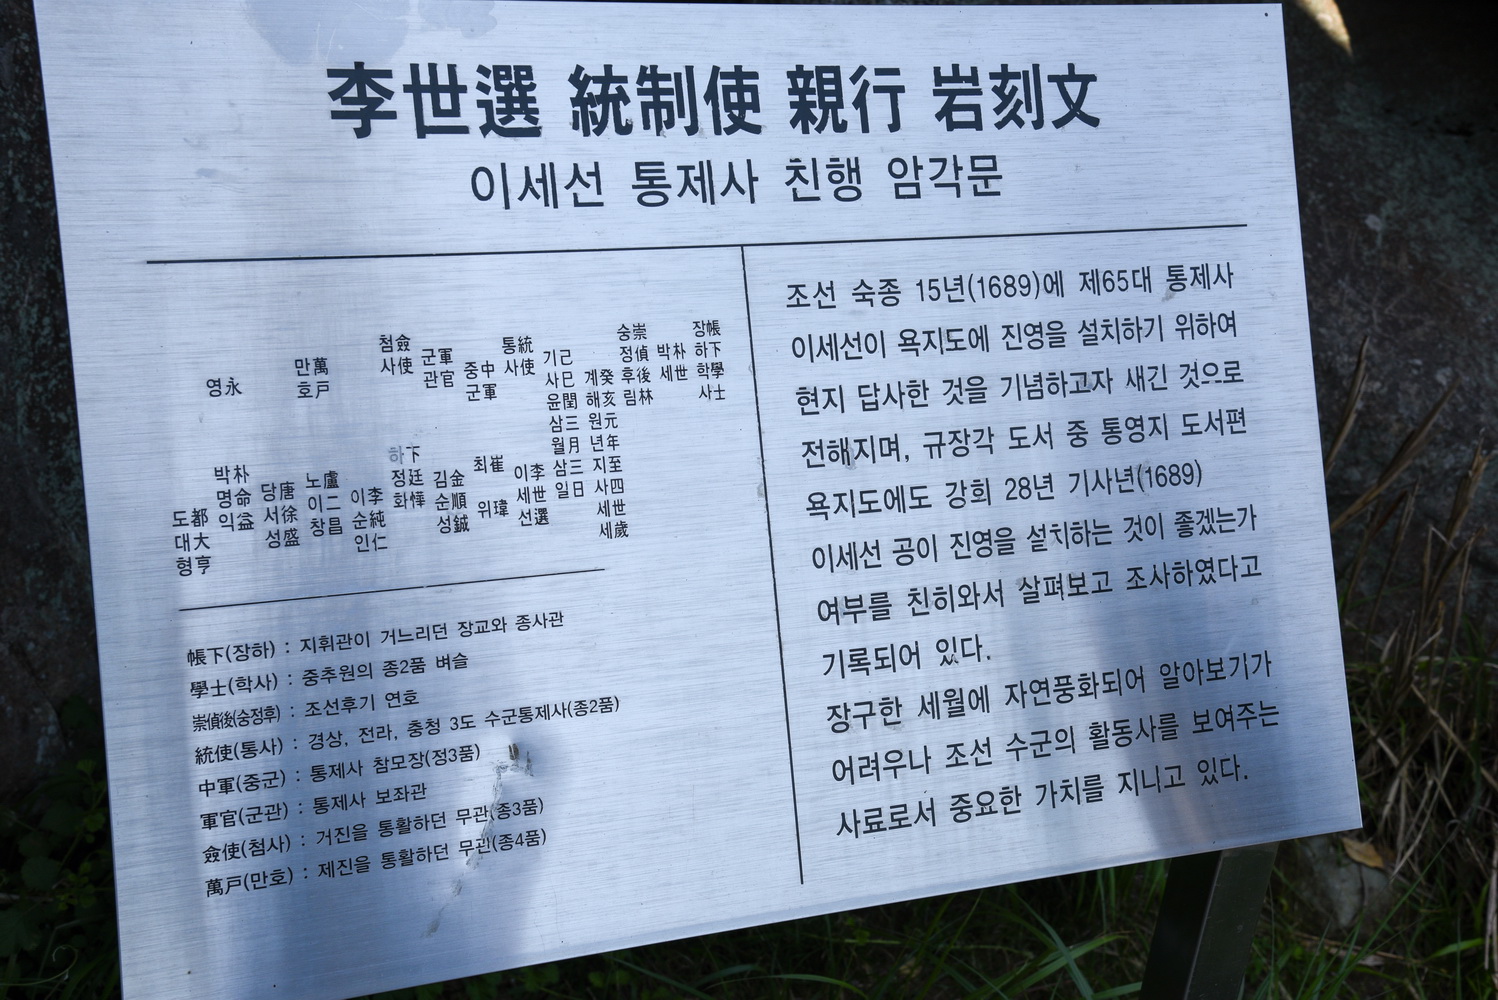 李世選 統制使 親行 岩刻文
이세선 통제사 친행 암각문
帳下學士
장하학사
朴世
박세
崇偵後林
숭정후림
癸亥元年至四世歲
계해원년지사세세
己巳閏三月三日
기사윤삼월삼일
統使 李世選
통사 이세선
中軍 崔瑋
중군 최위
軍官 金順鍼
군관 김순성
僉使 下廷㦊
첨사 하정화
李純仁
이순인
萬戶 盧二昌
만호 노이창
唐徐盛
당서성
永 朴命益
영 박명익
都大亨
도대형
帳下(장하) : 지휘관이 거느리던 장교와 종사관
學士(학사) : 중추원의 종2품 벼슬
崇偵後(숭정후) : 조선후기 연호
統使(통사) : 경상, 전라, 충청 3도 수군통제사(종2품)
中軍(중군) : 통제사 참모장(정3품)
軍官(군관) : 통제사 보좌관
僉使(첨사) : 거진을 통활하던 무관(종3품)
萬戶(만호) : 제진을 통활하던 무관(종4품)
조선 숙종 15년(1689)에 제65대 통제사
이세선이 욕지도에 진영을 설치하기 위하여
현지 답사한 것을 기념하고자 새긴 것으로
전해지며, 규장각 도서 중 통영지 도서편
욕지도에도 강희 28년 기사년(1689)
이세선 공이 진영을 설치하는 것이 좋겠는가
여부를 친히와서 살펴보고 조사하였다고
기록되어 있다.
장구한 세월에 자연풍화되어 알아보기가
어려우나 조선 수군의 활동사를 보여주는
사료로서 중요한 가치를 지니고 있다.